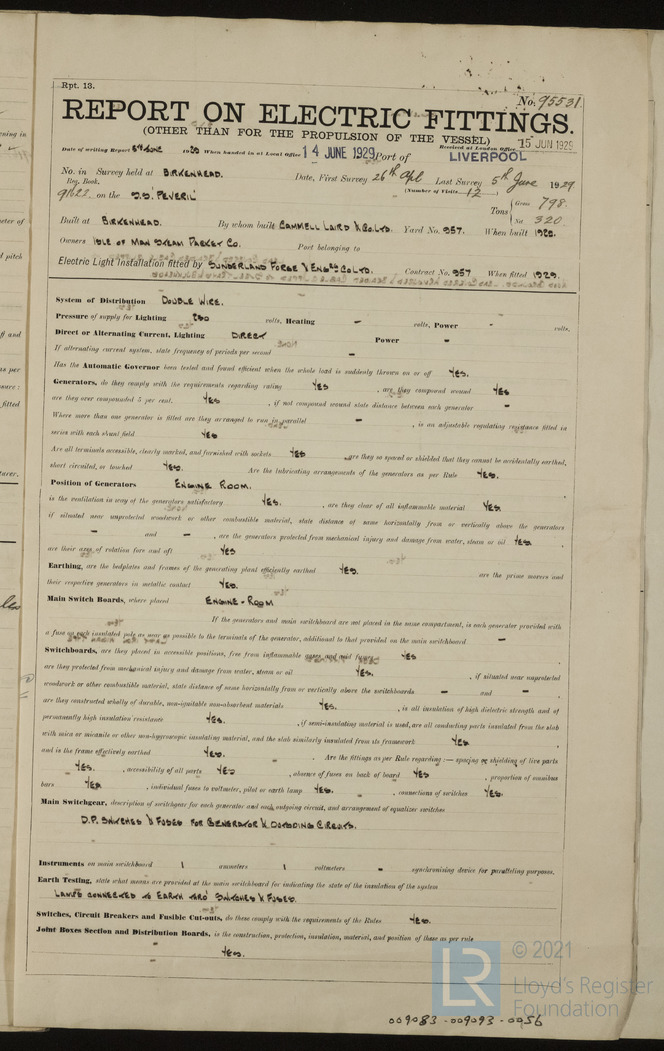 Rpt. 13.
No. 95531
REPORT ON ELECTRIC FITTINGS.
(OTHER THAN FOR THE PROPULSION OF THE VESSEL)
Date of writing Report 19 When handed in at Local Office 14 JUNE 1929 Port of LIVERPOOL Received at London Office 15 JUN 1929
No. in Survey held at BIRKENHEAD. Date, First Survey 26th Apl Last Survey 5th June 1929
Reg. Book. (Number of Visits 12)
91022 on the S.S. 'PEVERIL' Tons Gross 798.
Net 320.
Built at BIRKENHEAD. By whom built CAMMELL LAIRD & CO. LTD. Yard No. 957. When built 1929.
Owners ISLE OF MAN STEAM PACKET CO. Port belonging to
Electric Light Installation fitted by SUNDERLAND FORGE & ENGG CO LTD. Contract No. 957 When fitted 1929.
System of Distribution DOUBLE WIRE.
Pressure of supply for Lighting volts, Heating - volts, Power - volts.
Direct or Alternating Current, Lighting DIRECT Power -
If alternating current system, state frequency of periods per second -
Has the Automatic Governor been tested and found efficient when the whole load is suddenly thrown on or off YES.
Generators, do they comply with the requirements regarding rating YES , are they compound wound YES
are they over compounded 5 per cent. YES , if not compound wound state distance between each generator -
Where more than one generator is fitted are they arranged to run in parallel - , is an adjustable regulating resistance fitted in
series with each shunt field YES
Are all terminals accessible, clearly marked, and furnished with sockets YES are they so spaced or shielded that they cannot be accidentally earthed,
short circuited, or touched YES. Are the lubricating arrangements of the generators as per Rule YES.
Position of Generators ENGINE ROOM.
is the ventilation in way of the generators satisfactory YES. , are they clear of all inflammable material YES.
if situated near unprotected woodwork or other combustible material, state distance of same horizontally from or vertically above the generators
- and - , are the generators protected from mechanical injury and damage from water, steam or oil YES.
are their axes of rotation fore and aft YES
Earthing, are the bedplates and frames of the generating plant efficiently earthed YES. are the prime movers and
their respective generators in metallic contact YES.
Main Switch Boards, where placed ENGINE-ROOM
If the generators and main switchboard are not placed in the same compartment, is each generator provided with
a fuse on each insulated pole as near as possible to the terminals of the generator, additional to that provided on the main switchboard -
Switchboards, are they placed in accessible positions, free from inflammable gases and acid fumes YES
are they protected from mechanical injury and damage from water, steam or oil YES. , if situated near unprotected
woodwork or other combustible material, state distance of same horizontally from or vertically above the switchboards - and -
are they constructed wholly of durable, non-ignitable non-absorbent materials YES. , is all insulation of high dielectric strength and of
permanently high insulation resistance YES. , if semi-insulating material is used, are all conducting parts insulated from the slab
with mica or micanite or other non-hygroscopic insulating material, and the slab similarly insulated from its framework YES.
and is the frame effectively earthed YES. Are the fittings as per Rule regarding :— spacing or shielding of live parts
YES. , accessibility of all parts YES , absence of fuses on back of board YES , proportion of omnibus
bars YES , individual fuses to voltmeter, pilot or earth lamp YES. , connections of switches YES.
Main Switchgear, description of switchgear for each generator and each outgoing circuit, and arrangement of equalizer switches
D.P. SWITCHES & FUSES FOR GENERATOR & OUTGOING CIRCUITS.
Instruments on main switchboard 1 ammeters 1 voltmeters - synchronizing device for paralleling purposes.
Earth Testing, state what means are provided at the main switchboard for indicating the state of the insulation of the system
LAMPS CONNECTED TO EARTH THRO' SWITCHES & FUSES.
Switches, Circuit Breakers and Fusible Cut-outs, do these comply with the requirements of the Rules YES.
Joint Boxes Section and Distribution Boards, is the construction, protection, insulation, material, and position of these as per rule
YES.
LR © 2021
Lloyd's Register
Foundation
009083-009093-0056